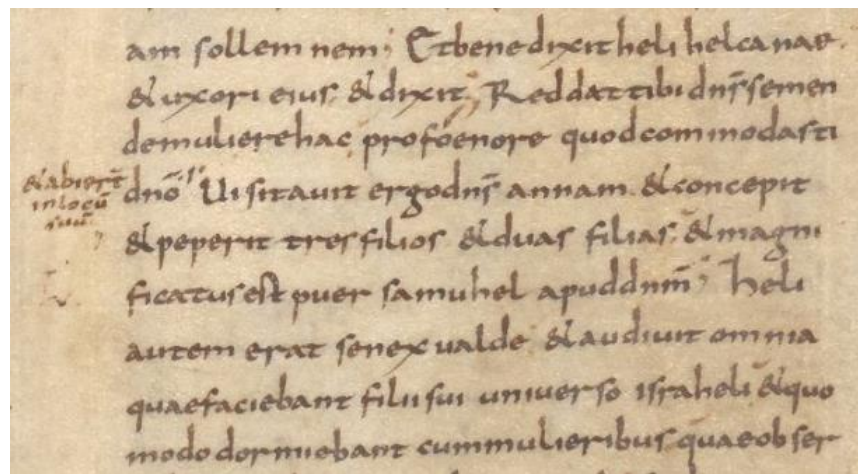 am sollemnem; Et benedixit heli helcanae
& uxori eius, & dixit; Reddat tibi dns semen
de muliere hac pro foenore quod commodasti
dno; Uisitauit ergo dns annam. & concepit
& abiert
in locu
suu
& peperit tres filios & duas filias; & magni
ficatus est puer samuhel apud dnm; heli
autem erat senex ualde. & audiuit omnia
quae faciebant filii sui uniuerso israheli & quo
modo dormiebant cum mulieribus quae obser